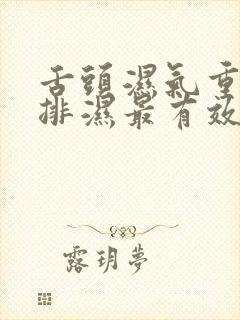 舌頭濕氣重
排濕最有效
露玥夢